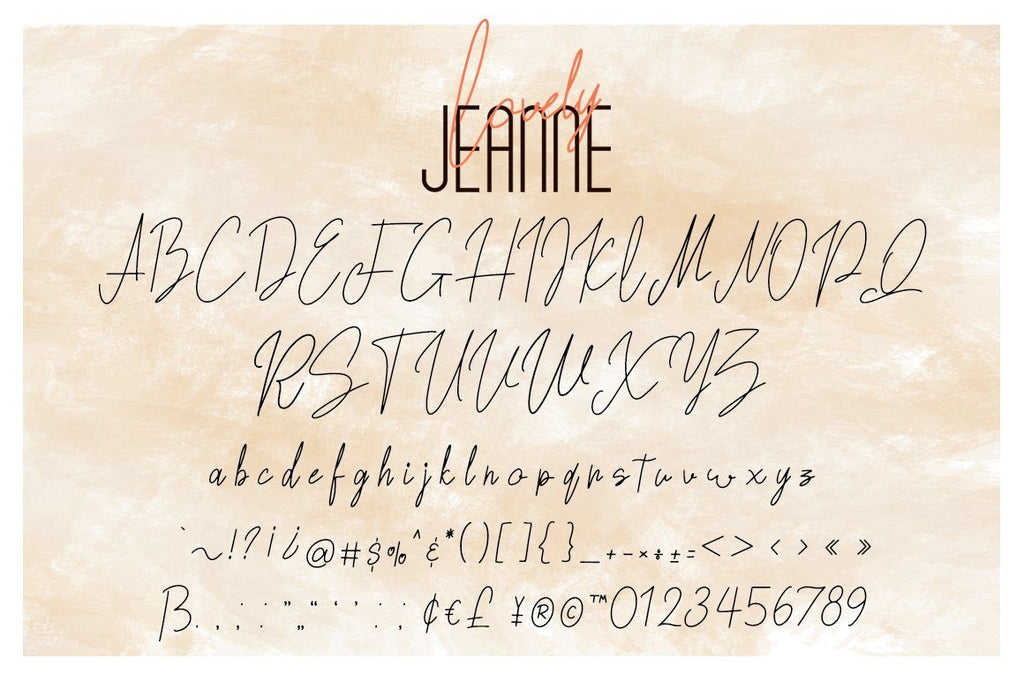 lovely
JEANNE
ABCDEFGHIJKLMNOPQ
RSTUVWXYZ
abcdefghijklnopqrstuvwxyz
` ~!?¡¿@#$%^&*()[]{}_+-×÷±=<>‹›«»
ß.,:.”„“‘’.:;¢€£¥®©™0123456789